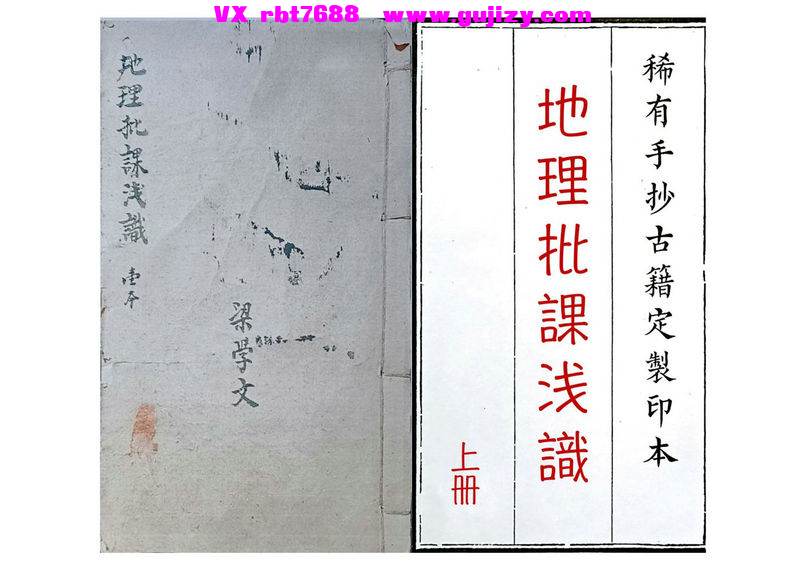 VX rbt7688 www.gujizy.com
地理批課浅識
壹本
梁學文
稀有手抄古籍定製印本
地理批課浅識
上冊